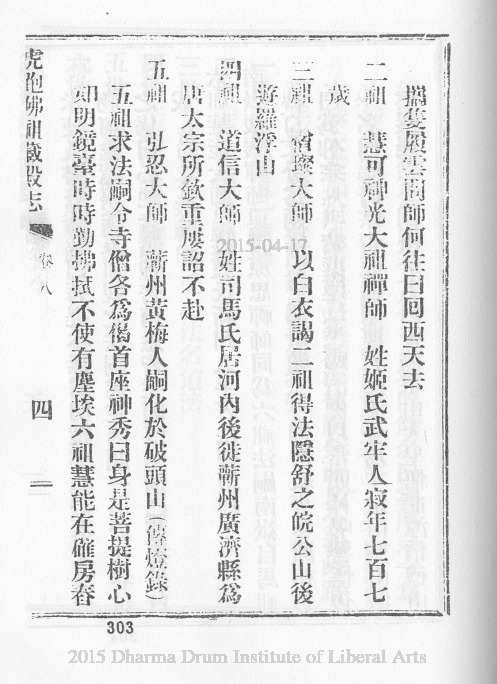 攜隻履雲問師何往曰回西天去
二祖　慧可神光大祖禪師　姓姬氏武牢人寂年七百七
歲
三祖　僧璨大師　以白衣謁二祖得法隱舒之皖公山後
遊羅浮山
四祖　道信大師　姓司馬氏居河內後徙蘄州廣濟縣爲
唐太宗所欽重屢詔不赴
五祖　弘忍大師　蘄州黃梅人嗣化於破頭山（傳燈錄）
五祖求法嗣令寺僧各爲偈首座神秀曰身是菩提樹心
如明鏡臺時時勤拂拭不使有塵埃六祖慧能在碓房舂
虎跑佛祖藏殿志
卷八
四
303
2015-04-17
2015 Dharma Drum Institute of Liberal Arts